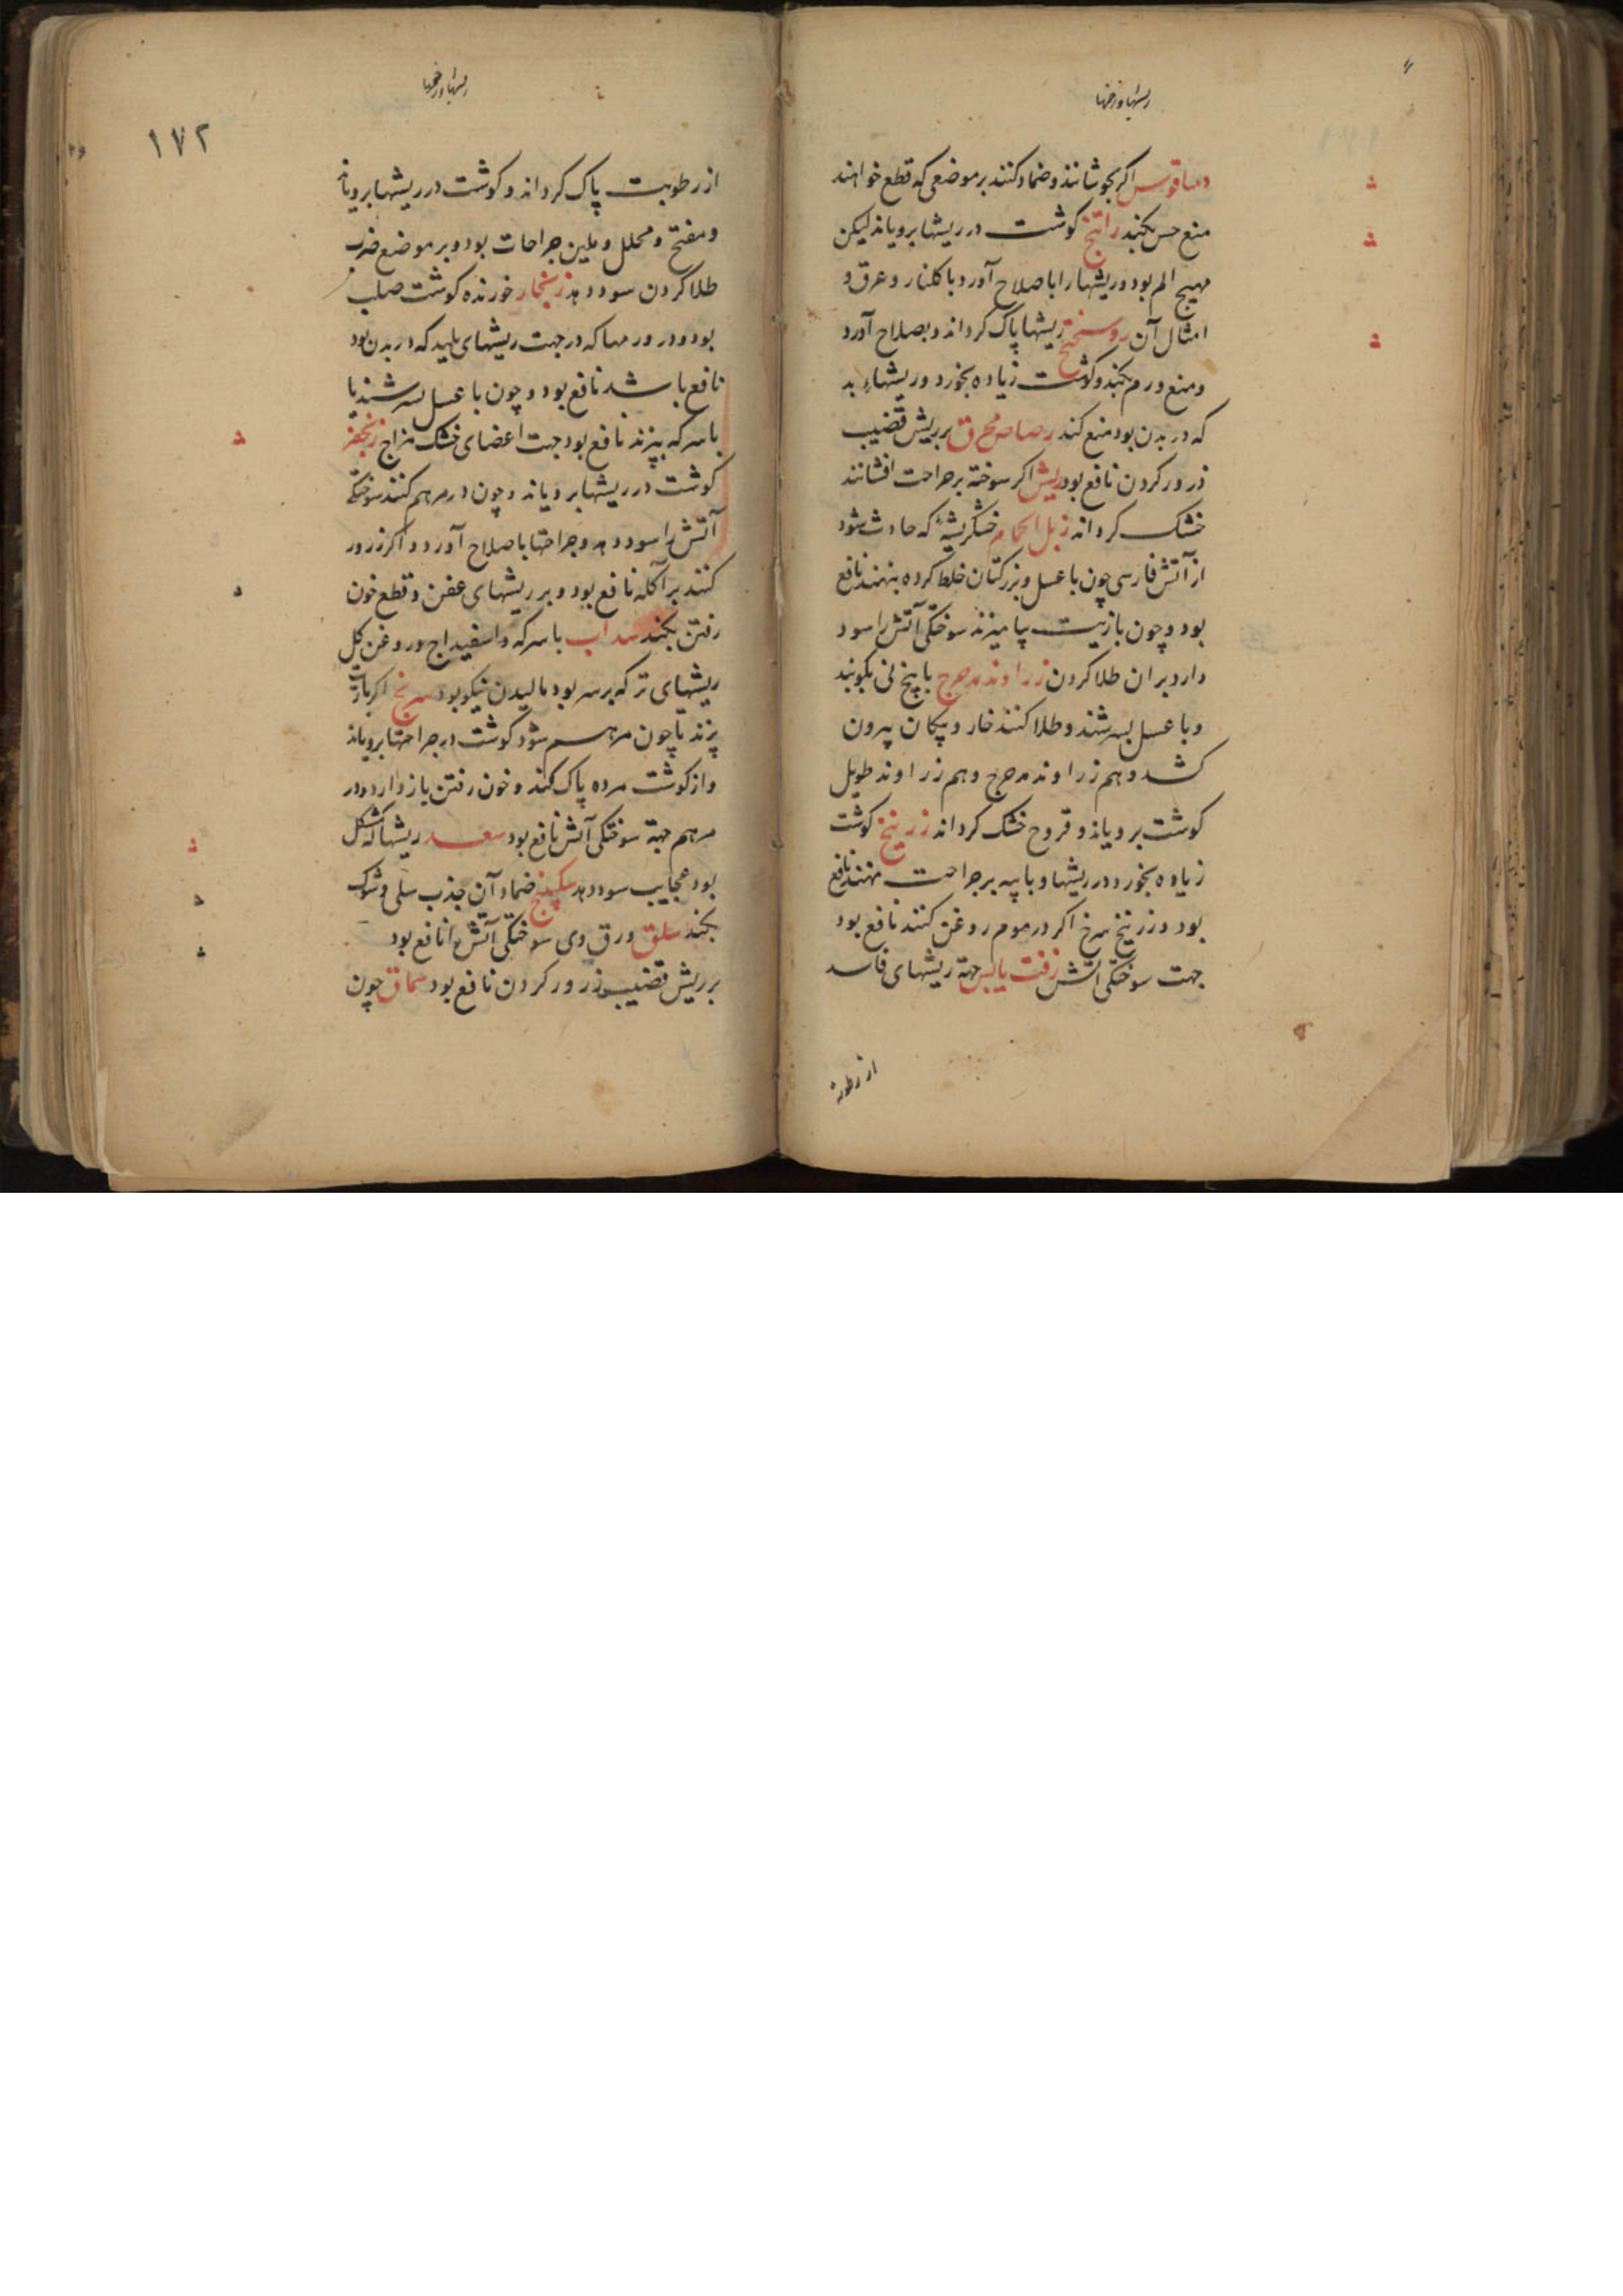 ریشها و زخمها
اکر بجوشانند و ضماد کنند بر موضعی که قطع خواهند
منع حس بکند راتنج کوشت در ریشها برویاند لیکن
مهیج الم بود و ریشها را باصلاح آورد با کلنار و عرق و
امثال آن روسختج ریشها پاک کرداند و بصلاح آورد
و منع ورم بکند و کوشت زیاده بخورد و ریشهاء بد
که در بدن بود منع کند رصاص محرق بر ریش قضیب
ذرور کردن نافع بود ریش اکر سوخته بر جراحت افشانند
خشک کرداند زبل الحمام خشکریشهٔ که حادث شود
از آتش فارسی چون با عسل و بزرکتان خلط کرده بنهند نافع
بود و چون با زیت بیامیزند سوختکی آتش را سود
دارد بران طلا کردن زراوند مدحرج با بیخ نی بکوبند
و با عسل بسرشند و طلا کنند خار و پیکان بیرون
کشد و هم زراوند مدحرج و هم زراوند طویل
کوشت برویاند و قروح خشک کرداند زرنیخ کوشت
زیاده بخورد در ریشها و با پیه بر جراحت نهند نافع
بود و زرنیخ سرخ اکر در موم روغن کنند نافع بود
جهت سوختکی آتش زفت یابس جهة ریشهای فاسد
از رطوبة
ریشها و زخمها
۱۷۲
از رطوبت پاک کرداند و کوشت در ریشها برویاند
و مفتح و محلل و ملین جراحات بود و بر موضع ضرب
طلا کردن سود دهد زنجار خورنده کوشت صلب
بود و در ورمها که در جهت ریشهای پلید که در بدن بود
نافع باشد نافع بود و چون با عسل بسرشند یا
با سرکه بپزند نافع بود جهت اعضای خشک مزاج زنجفر
کوشت در ریشها برویاند و چون در مرهم کنند سوختکی
آتش را سود دهد و جراحتها باصلاح آورد و اکر ذرور
کنند بر آکله نافع بود و بر ریشهای عفن و قطع خون
رفتن بکند سداب با سرکه و اسفیداج و روغن کل
ریشهای تر که بر سر بود مالیدن نیکو بود سرنج اکر با زیت
پزند تا چون مرهم شود کوشت در جراحتها برویاند
و از کوشت مرده پاک کند و خون رفتن باز دارد و در
مرهم جهة سوختکی آتش نافع بود سعد ریشها که مشکل
بود عجایب سود دهد سکبینج ضماد آن جذب سلی و شوک
بکند سلق ورق وی سوختکی آتش را نافع بود
بر ریش قضیب ذرور کردن نافع بود سماق چون